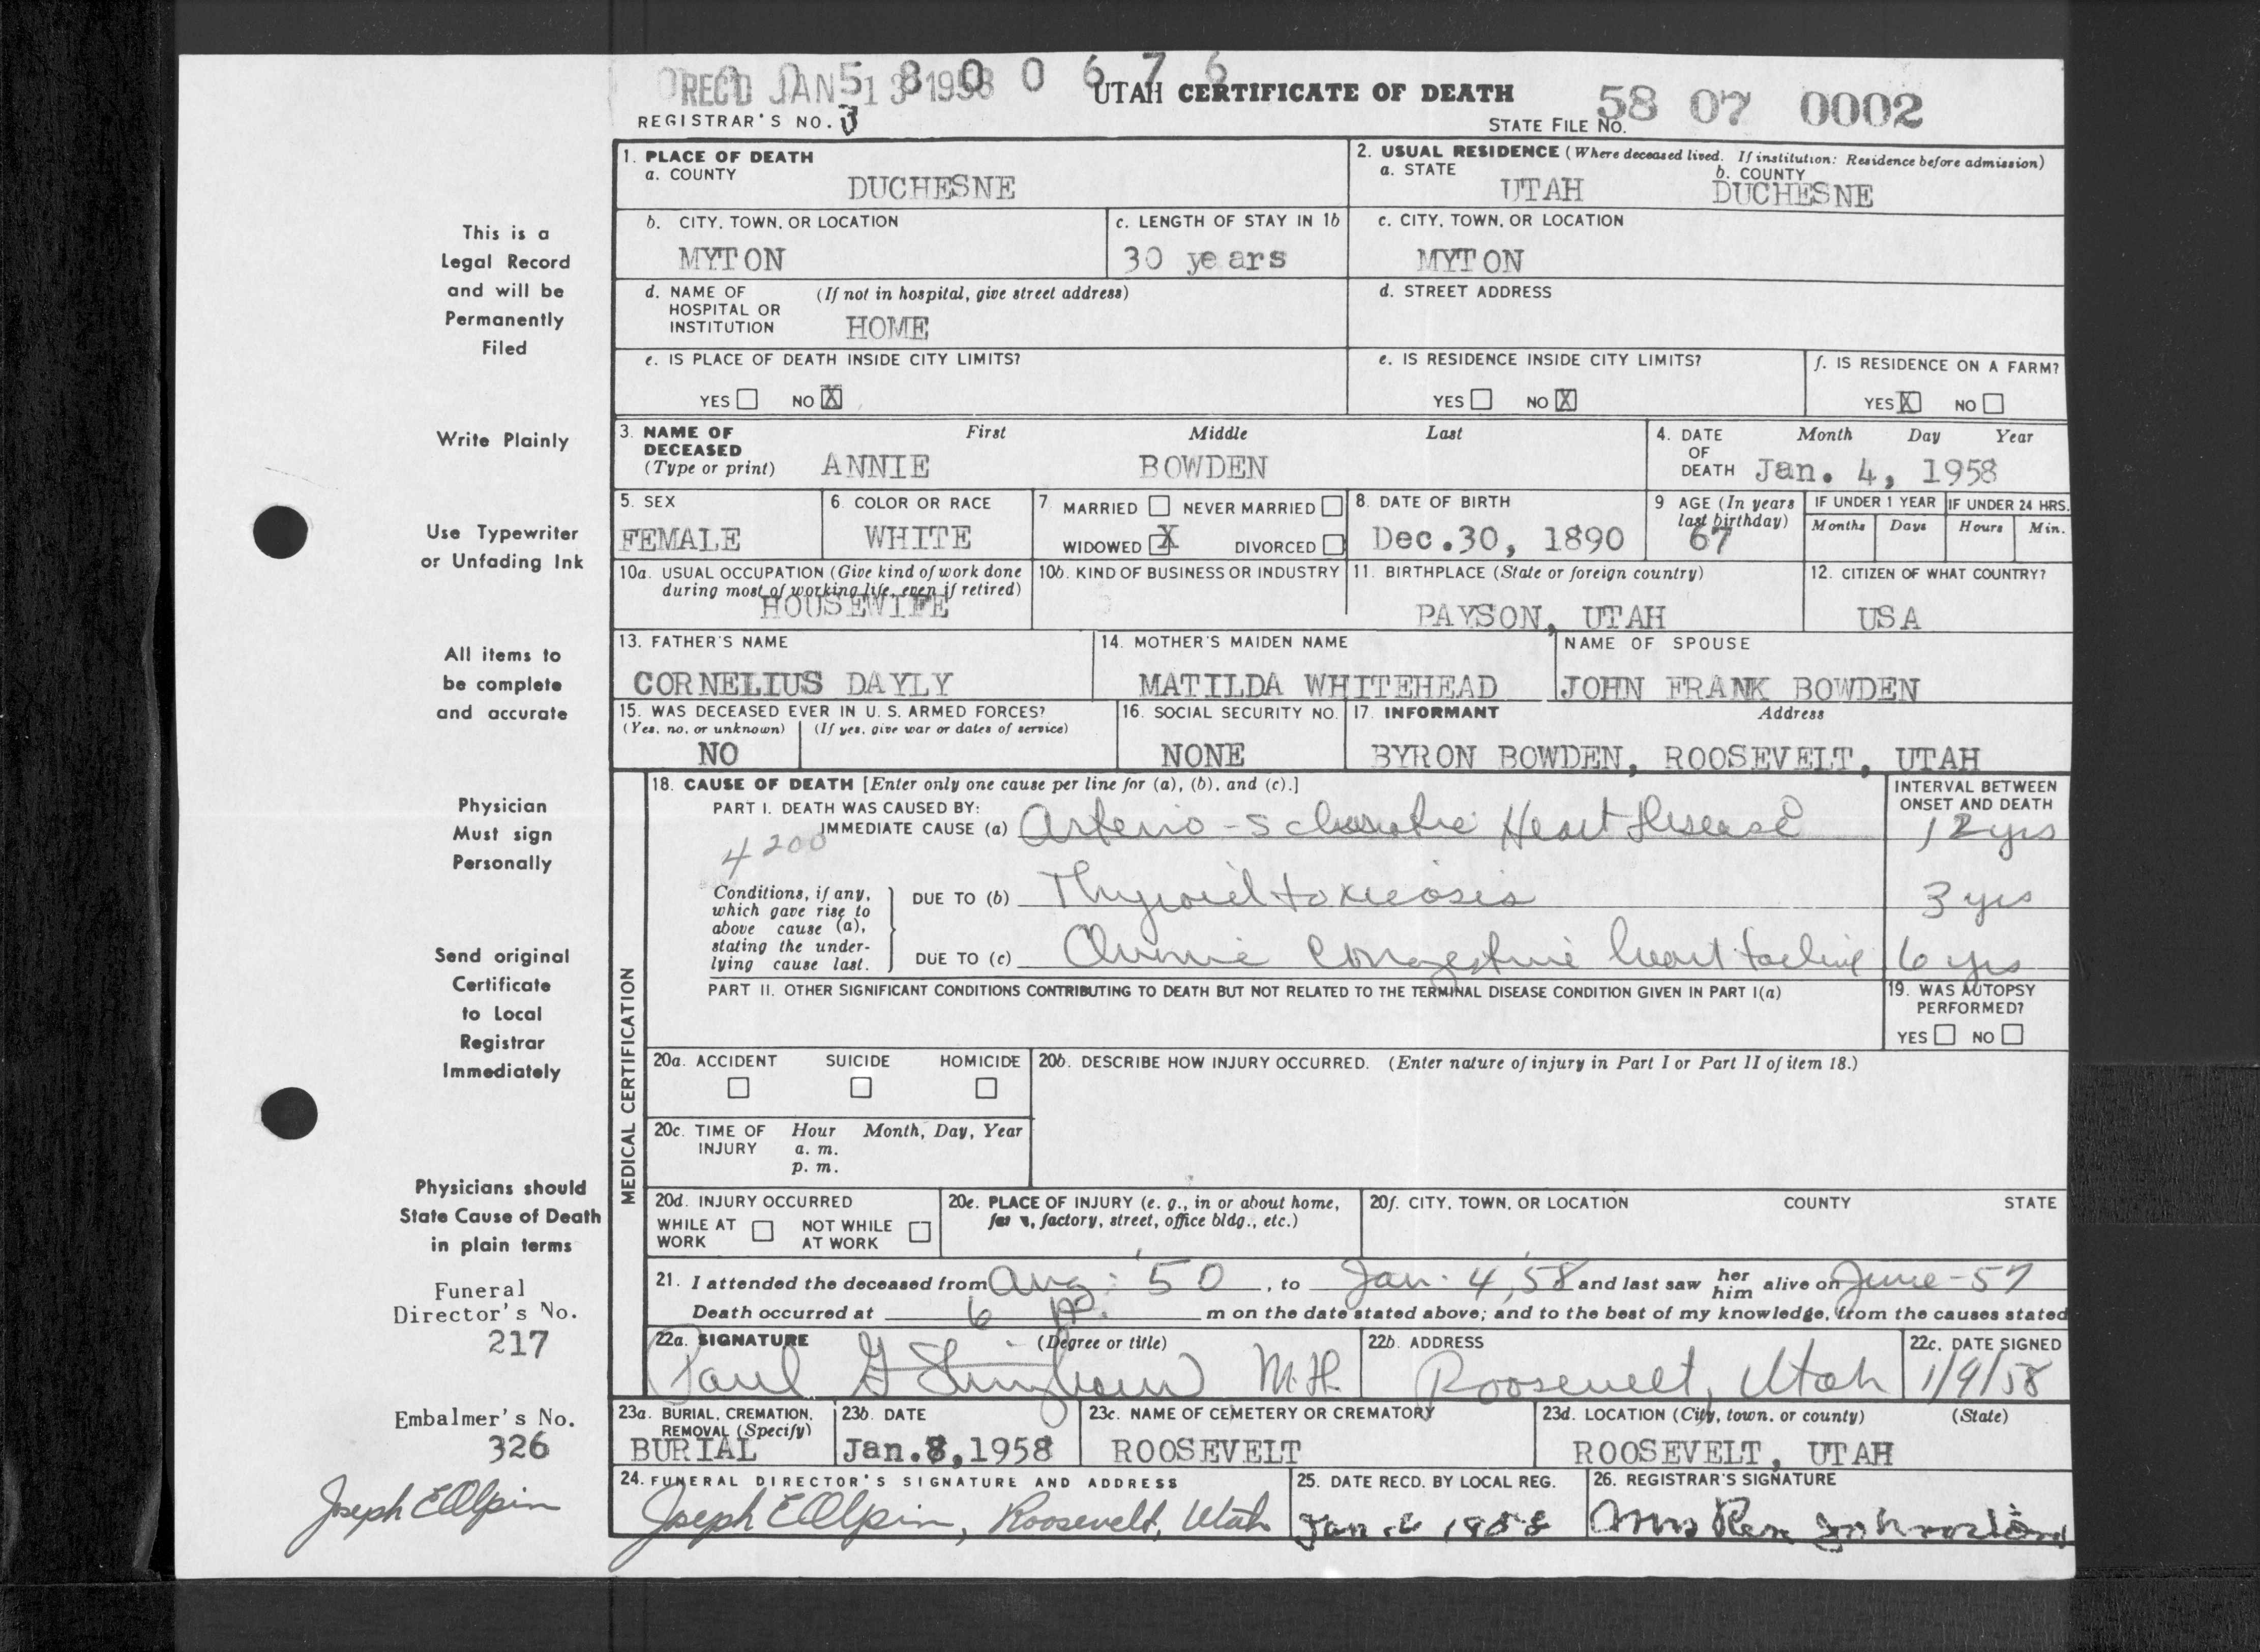 REC'D JAN 13 1958
5 8 0 0 6 7 6
UTAH CERTIFICATE OF DEATH
REGISTRAR'S NO. 3
STATE FILE NO. 58 07 0002
This is a
Legal Record
and will be
Permanently
Filed
Write Plainly
Use Typewriter
or Unfading Ink
All items to
be complete
and accurate
Physician
Must sign
Personally
Send original
Certificate
to Local
Registrar
Immediately
Physicians should
State Cause of Death
in plain terms
Funeral
Director's No.
217
Embalmer's No.
326
Joseph E Olpin
1. PLACE OF DEATH
a. COUNTY
DUCHESNE
2. USUAL RESIDENCE (Where deceased lived. If institution: Residence before admission)
a. STATE
UTAH
b. COUNTY
DUCHESNE
b. CITY, TOWN, OR LOCATION
MYTON
c. LENGTH OF STAY IN 1b
30 years
c. CITY, TOWN, OR LOCATION
MYTON
d. NAME OF HOSPITAL OR INSTITUTION
(If not in hospital, give street address)
HOME
d. STREET ADDRESS
e. IS PLACE OF DEATH INSIDE CITY LIMITS?
YES NO X
e. IS RESIDENCE INSIDE CITY LIMITS?
YES NO X
f. IS RESIDENCE ON A FARM?
YES X NO
3. NAME OF DECEASED
(Type or print)
First Middle Last
ANNIE BOWDEN
4. DATE OF DEATH
Month Day Year
Jan. 4, 1958
5. SEX
FEMALE
6. COLOR OR RACE
WHITE
7. MARRIED NEVER MARRIED
WIDOWED X DIVORCED
8. DATE OF BIRTH
Dec.30, 1890
9 AGE (In years last birthday)
67
IF UNDER 1 YEAR
Months Days
IF UNDER 24 HRS.
Hours Min.
10a. USUAL OCCUPATION (Give kind of work done during most of working life, even if retired)
HOUSEWIFE
10b. KIND OF BUSINESS OR INDUSTRY
11. BIRTHPLACE (State or foreign country)
PAYSON, UTAH
12. CITIZEN OF WHAT COUNTRY?
USA
13. FATHER'S NAME
CORNELIUS DAYLY
14. MOTHER'S MAIDEN NAME
MATILDA WHITEHEAD
NAME OF SPOUSE
JOHN FRANK BOWDEN
15. WAS DECEASED EVER IN U. S. ARMED FORCES?
(Yes, no, or unknown) (If yes, give war or dates of service)
NO
16. SOCIAL SECURITY NO.
NONE
17. INFORMANT Address
BYRON BOWDEN, ROOSEVELT, UTAH
MEDICAL CERTIFICATION
18. CAUSE OF DEATH [Enter only one cause per line for (a), (b), and (c).]
INTERVAL BETWEEN ONSET AND DEATH
PART I. DEATH WAS CAUSED BY:
IMMEDIATE CAUSE (a) Arterio-sclerotic Heart Disease 12 yrs
4200
Conditions, if any, which gave rise to above cause (a), stating the underlying cause last.
DUE TO (b) Thyroid toxicosis 3 yrs
DUE TO (c) Chronic Congestive heart failure 6 yrs
PART II. OTHER SIGNIFICANT CONDITIONS CONTRIBUTING TO DEATH BUT NOT RELATED TO THE TERMINAL DISEASE CONDITION GIVEN IN PART I(a)
19. WAS AUTOPSY PERFORMED?
YES NO
20a. ACCIDENT SUICIDE HOMICIDE
20b. DESCRIBE HOW INJURY OCCURRED. (Enter nature of injury in Part I or Part II of item 18.)
20c. TIME OF INJURY
Hour Month, Day, Year
a. m.
p. m.
20d. INJURY OCCURRED
WHILE AT WORK NOT WHILE AT WORK
20e. PLACE OF INJURY (e. g., in or about home, farm, factory, street, office bldg., etc.)
20f. CITY, TOWN, OR LOCATION COUNTY STATE
21. I attended the deceased from Aug. 50, to Jan. 4, 58 and last saw her him alive on June-57
Death occurred at 6 P. m on the date stated above; and to the best of my knowledge, from the causes stated
22a. SIGNATURE (Degree or title)
Paul G Stringham M.D.
22b. ADDRESS
Roosevelt, Utah
22c. DATE SIGNED
1/9/58
23a. BURIAL, CREMATION, REMOVAL (Specify)
BURIAL
23b. DATE
Jan.8,1958
23c. NAME OF CEMETERY OR CREMATORY
ROOSEVELT
23d. LOCATION (City, town, or county) (State)
ROOSEVELT, UTAH
24. FUNERAL DIRECTOR'S SIGNATURE AND ADDRESS
Joseph E Olpin, Roosevelt, Utah
25. DATE RECD. BY LOCAL REG.
Jan 1958
26. REGISTRAR'S SIGNATURE
Mrs Rex